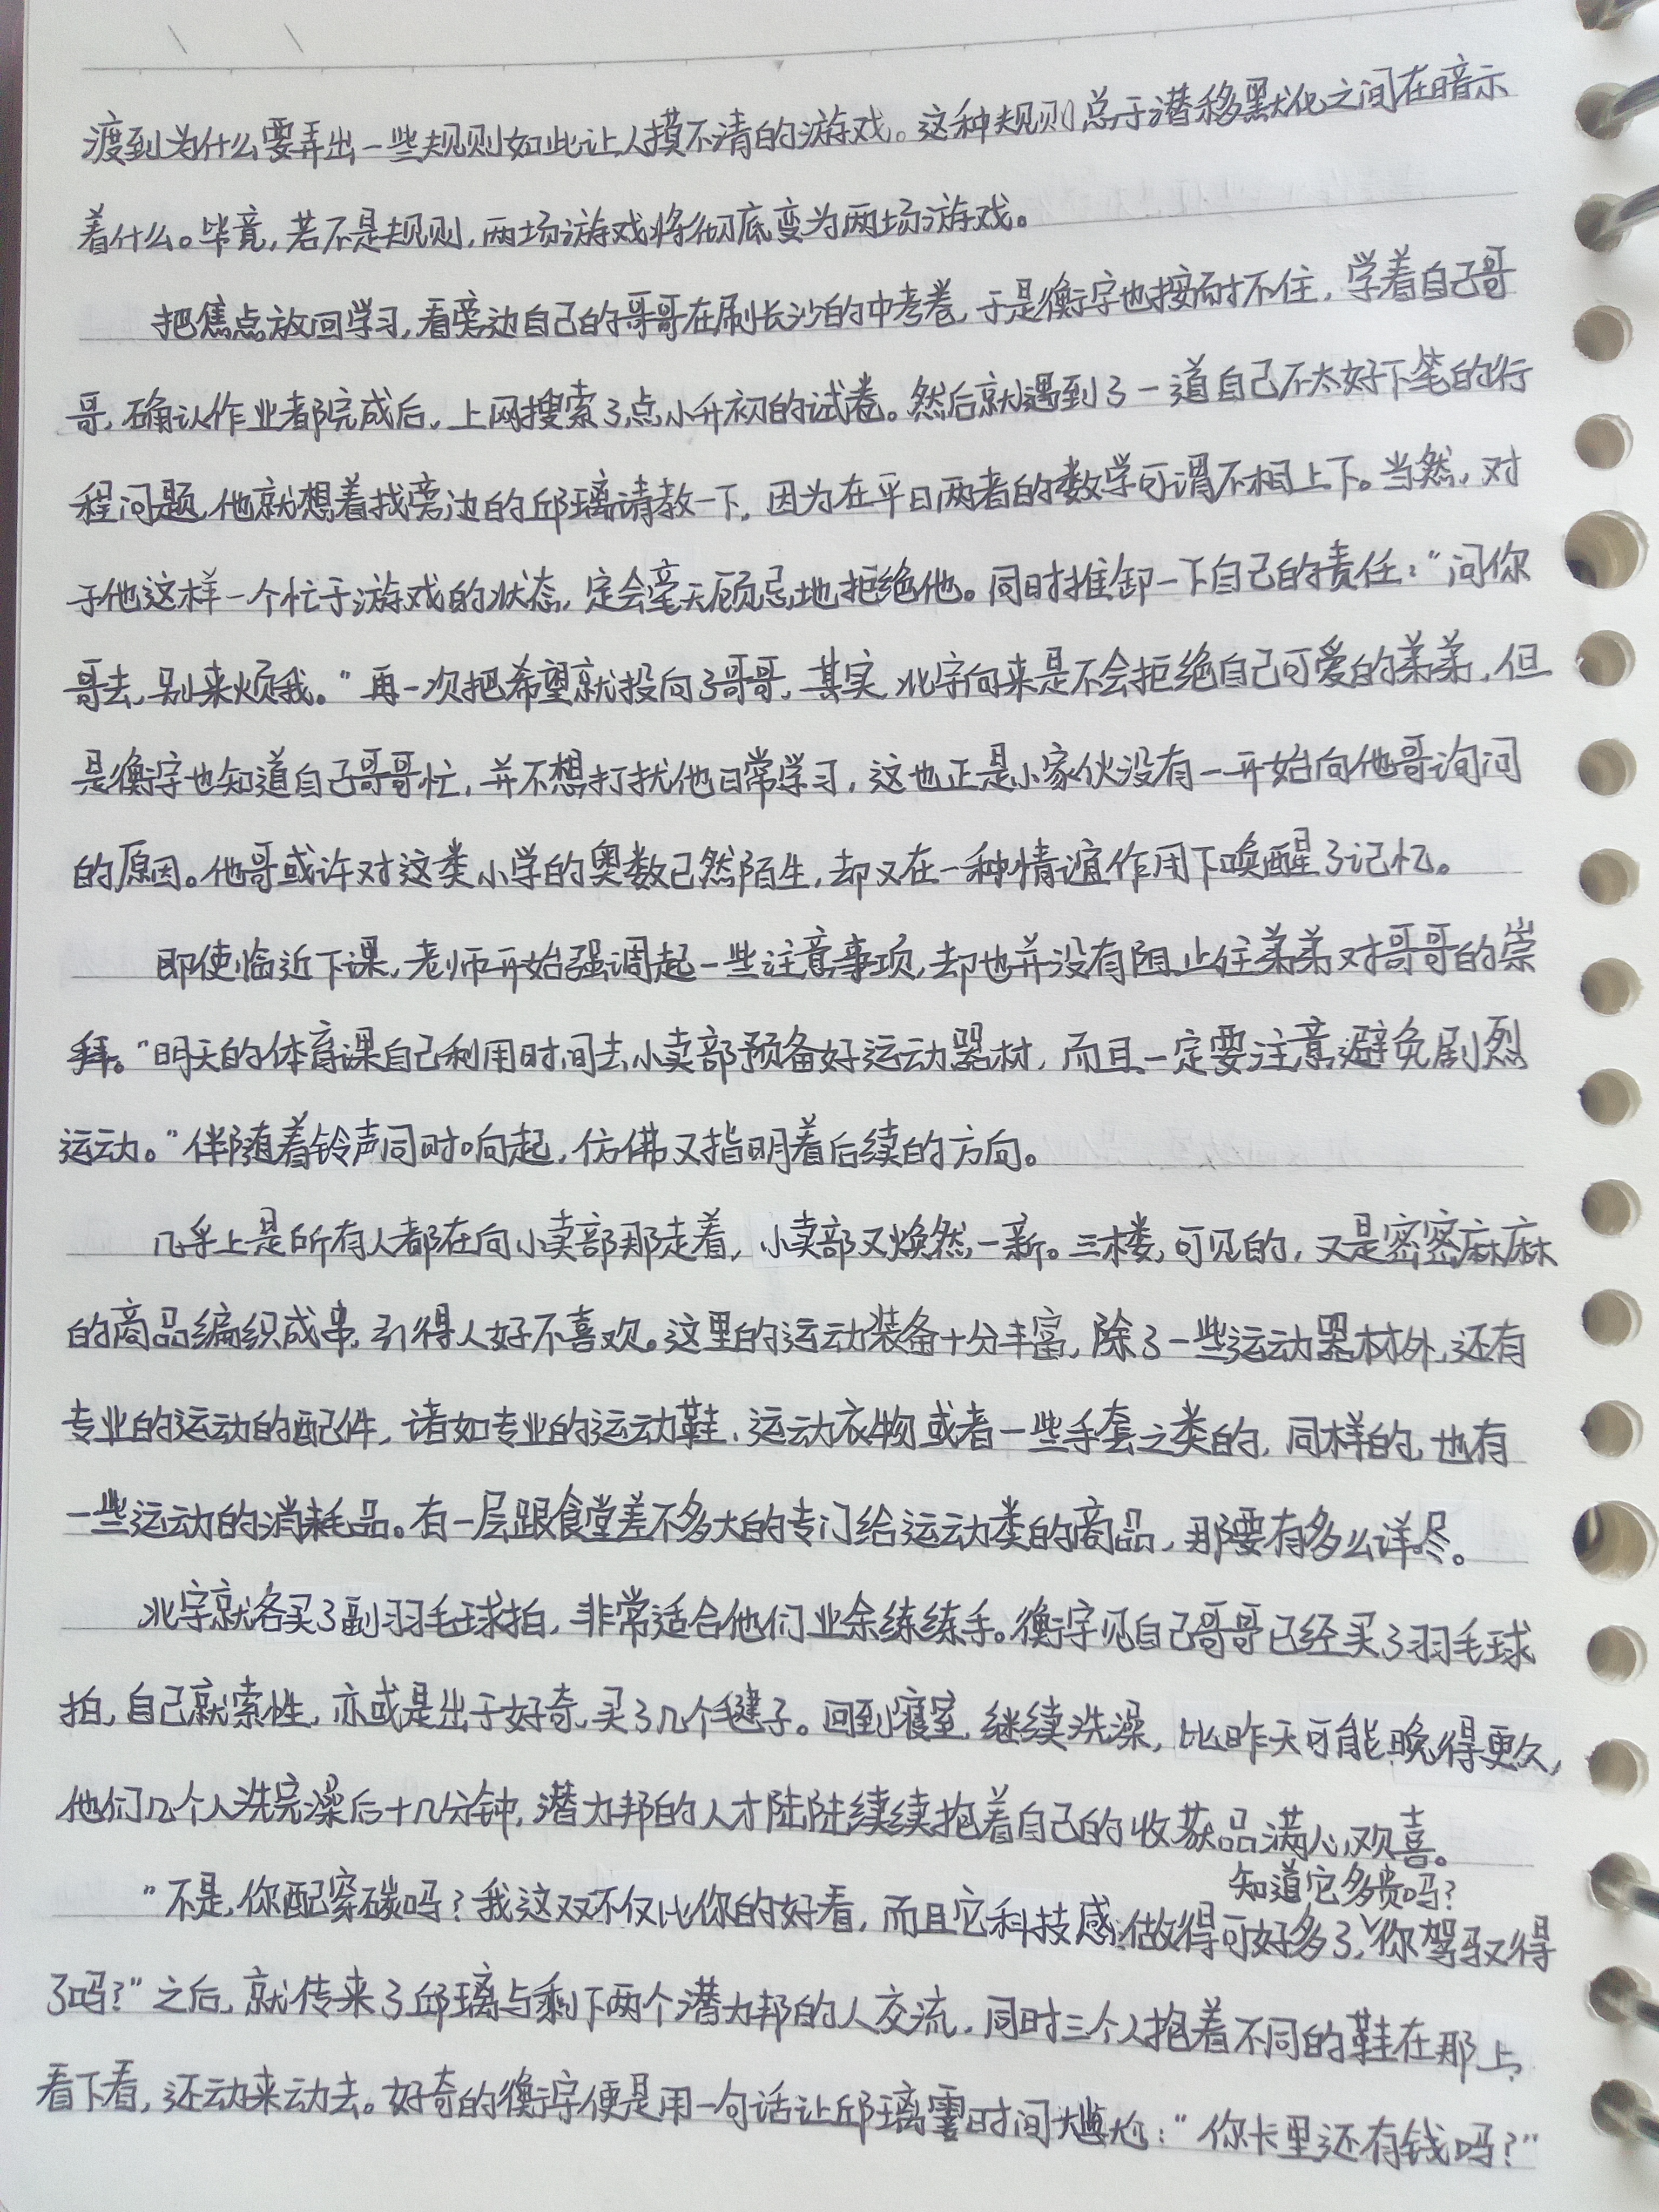 渡到为什么要弄出一些规则如此让人摸不清的游戏。这种规则总于潜移默化之间在暗示
着什么。毕竟,若不是规则,两场游戏将彻底变为两场游戏。
把焦点放回学习,看旁边自己的哥哥在刷长沙的中考卷,于是衡宇也按耐不住,学着自己哥
哥,确认作业都完成后,上网搜索了点小升初的试卷。然后就遇到了一道自己不太好下笔的行
程问题,他就想着找旁边的邱璃请教一下,因为在平日两者的数学可谓不相上下。当然,对
于他这样一个忙于游戏的状态,定会毫无顾忌地拒绝他。同时推卸一下自己的责任:“问你
哥去,别来烦我。”再一次把希望就投向了哥哥,其实,北宇向来是不会拒绝自己可爱的弟弟,但
是衡宇也知道自己哥哥忙,并不想打扰他日常学习,这也正是小家伙没有一开始向他哥询问
的原因。他哥或许对这类小学的奥数已然陌生,却又在一种情谊作用下唤醒了记忆。
即使临近下课,老师开始强调起一些注意事项,却也并没有阻止住弟弟对哥哥的崇
拜。“明天的体育课自己利用时间去小卖部预备好运动器材,而且一定要注意避免剧烈
运动。”伴随着铃声同时响起,仿佛又指明着后续的方向。
几乎上是所有人都在向小卖部那走着,小卖部又焕然一新。三楼,可见的,又是密密麻麻
的商品编织成串,引得人好不喜欢。这里的运动装备十分丰富,除了一些运动器材外,还有
专业的运动的配件,诸如专业的运动鞋、运动衣物或者一些手套之类的,同样的,也有
一些运动的消耗品。有一层跟食堂差不多大的专门给运动类的商品,那要有多么详尽。
北宇就各买了副羽毛球拍,非常适合他们业余练练手。衡宇见自己哥哥已经买了羽毛球
拍,自己就索性,亦或是出于好奇,买了几个毽子。回到寝室,继续洗澡,比昨天可能晚得更久,
他们几个人洗完澡后十几分钟,潜力邦的人才陆陆续续抱着自己的收获品满心欢喜。
“不是,你配穿碳吗?我这双不仅比你的好看,而且它科技感做得可好多了,知道它多贵吗?你驾驭得
了吗?”之后,就传来了邱璃与剩下两个潜力邦的人交流,同时三个人抱着不同的鞋在那上
看下看,还动来动去。好奇的衡宇便是用一句话让邱璃霎时间尴尬:“你卡里还有钱吗?”